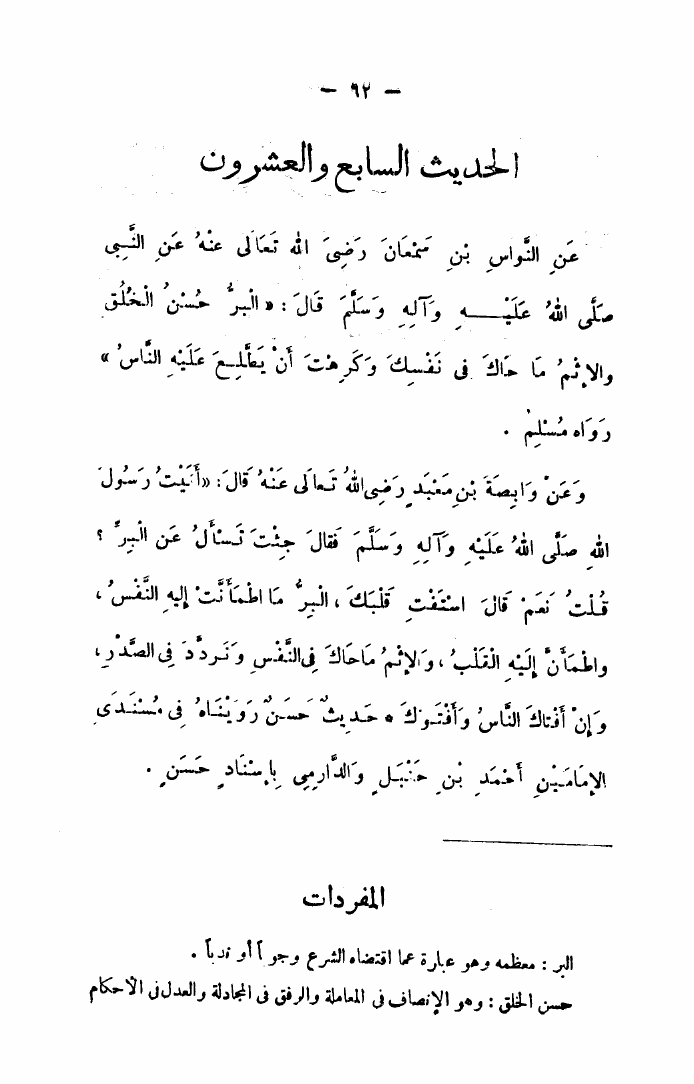 — ٩٢ —
الحديث السابع والعشرون
عَنِ النَّواسِ بْنِ سَمْعَانَ رَضِىَ اللهُ تَعَالَى عنْهُ عَنِ النَّبِى
صَلَّى اللهُ عَلَيْـــهِ وَآلِهِ وَسَلَّمَ قَالَ : « الْبِرُّ حُسْنُ الْخُلُقِ
والإِثْمُ مَا حَاكَ فى نَفْسِكَ وَكَرِهْتَ أَنْ يَطَّلِـعَ عَلَيْهِ النَّاسُ »
رَوَاه مُسْلِمٌ .
وَعَنْ وَابِصَةَ بْنِ مَعْبَدٍ رَضِى اللهُ تَعالَى عَنْهُ قَالَ : « أَتَيْتُ رَسُولَ
اللهِ صَلَّى اللهُ عَلَيْهِ وَآلِهِ وَسَلَّمَ فَقالَ جِئْتَ تَسْأَلُ عَن الْبِرِّ ؟
قُلْتُ نَعَمْ قَالَ اسْتَفْتِ قَلْبَكَ ، الْبِرُّ مَا اطْمَأَنَّتْ إِليهِ النَّفْسُ ،
واطْمَأَنَّ إِلَيْهِ الْقَلْبُ ، وَالإِثْمُ مَاحَاكَ فِى النَّفْسِ وَتَردَّدَ فِى الصَّدْرِ ،
وَإِنْ أَفْتاكَ النَّاسُ وَأَفْتَوْكَ » حَدِيثٌ حَسَنٌ رَوَيْنَاهُ فِى مُسْنَدَى
الإِمَامَيْنِ أَحْمَدِ بْنِ حَنْبَلٍ وَالدَّارِمِى بِإِسْنَادٍ حَسَنٍ .
المفردات
البر : معظمه وهو عبارة عما اقتضاه الشرع وجوباً أو ندباً .
حسن الخلق : وهو الإنصاف فى المعاملة والرفق فى المجادلة والعدل فى الأحكام